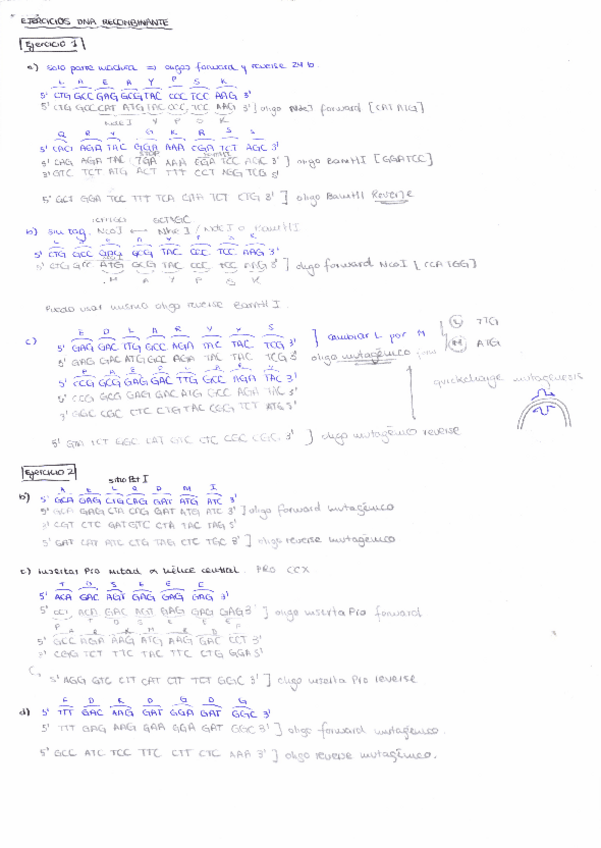 EJERCICIOS DNA RECOMBINANTE
Ejercicio 1
a) solo parte madura ⇒ oligos forward y reverse 24 b.
L A E A Y P S K
5' CTG GCC GAG GCG TAC CCC TCC AAG 3'
5' CTG GCC CAT ATG TAC CCC TCC AAG 3' ] oligo NdeI forward [CATATG]
NdeI Y P S K
5' CAG AGA TAC GGA AAA CGA TCT AGC 3'
5' CAG AGA TAC TGA AAA GGA TCC AGC 3' ] oligo BamHI [GGATCC]
3' GTC TCT ATG ACT TTT CCT AGG TCG 5'
5' GCT GGA TCC TTT TCA GTA TCT CTG 3' ] oligo BamHI Reverse
b) sin tag. NcoI ← NheI / NdeI o BamHI
5' CTG GCC GAG GCG TAC CCC TCC AAG 3'
5' CTG GCC ATG GCG TAC CCC TCC AAG 3' ] oligo forward NcoI [CCATGG]
M A Y P S K
Puedo usar mismo oligo reverse BamHI.
c)
E D L A R Y Y S
5' GAG GAC TTG GCC AGA TAC TAC TCG 3' ] cambiar L por M
L TTG
M ATG
5' GAG GAC ATG GCC AGA TAC TAC TCG 5' oligo mutagénico
5' CCG GCG GAG GAC TTG GCC AGA TAC 3'
5' CCG GCG GAG GAC ATG GCC AGA TAC 3'
3' GGC CGC CTC CTG TAC CGG TCT ATG 5'
quickchange mutagénesis
5' GTA TCT GGC CAT GTC CTC CGC CGG 3' ] oligo mutagénico reverse
Ejercicio 2
sitio Pst I
b)
A E L Q D M I
5' GCA GAG CTG CAG GAT ATG ATC 3'
5' GCA GAG CTA CAG GAT ATG ATC 3' ] oligo forward mutagénico
3' CGT CTC GAT GTC CTA TAC TAG 5'
5' GAT CAT ATC CTG TAG CTC TGC 3' ] oligo reverse mutagénico
c) insertar Pro mitad α hélice central. PRO CCX
5' ACA GAC AGT GAG GAG GAG 3'
5' CCT ACA GAC AGT GAG GAG GAG 3' ] oligo inserta Pro forward
5' GCC AGA AAG ATG AAG GAC CCT 3'
3' CGG TCT TTC TAC TTC CTG GGA 5'
5' AGG GTC CTT CAT CTT TCT GGC 3' ] oligo inserta Pro reverse
d)
F D K D G D G
5' TTT GAC AAG GAT GGA GAT GGC 3'
5' TTT GAG AAG GAA GGA GAT GGC 3' ] oligo forward mutagénico.
5' GCC ATC TCC TTC CTT CTC AAA 3' ] oligo reverse mutagénico.